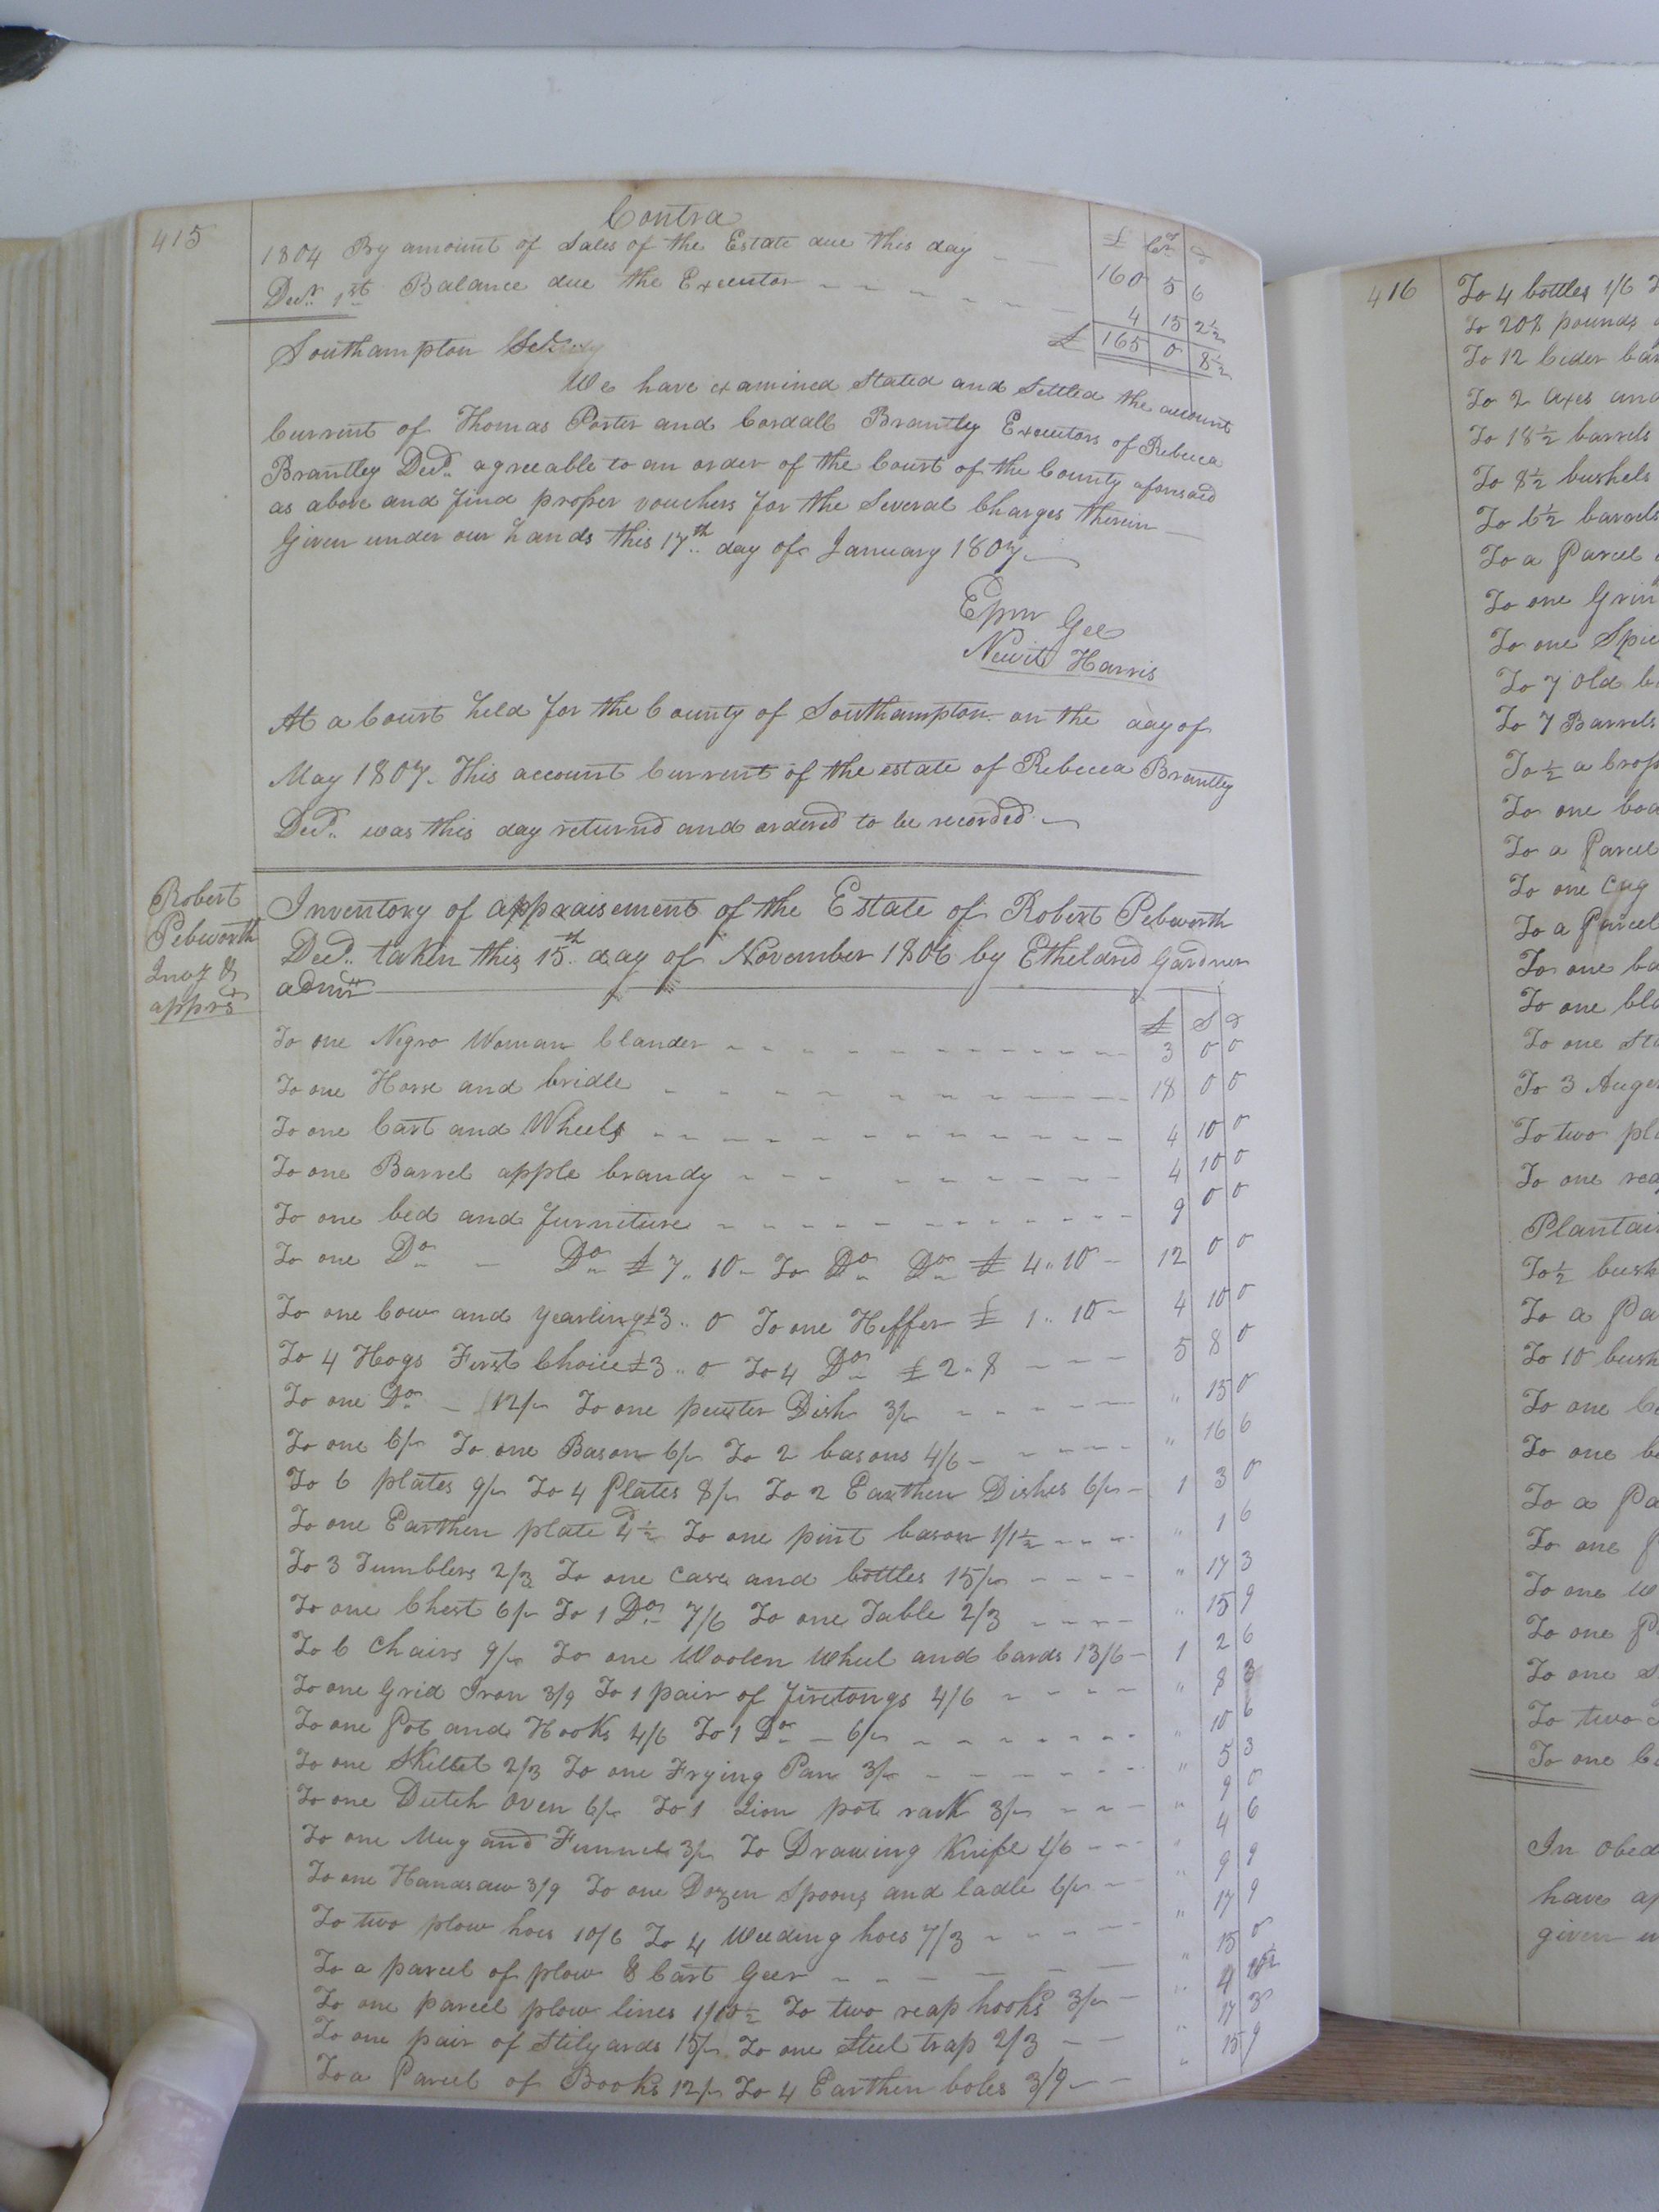 415
Contra
£ Cr d
1804 By amount of Sales of the Estate due this day 160 5 6
Decr. 1st Balance due the Executor 4 15 2½
£ 165 0 8½
Southampton
We have examined Stated and Settled the account
Current of Thomas Porter and Cordall Brantley Executors of Rebecca
Brantley Decd. agreeable to an order of the Court of the County aforesaid
as above and find proper vouchers for the Several Charges therein
Given under our hands this 17th day of January 1807
Epm Gee
Newit Harris
At a Court held for the County of Southampton on the day of
May 1807. This account Current of the estate of Rebecca Brantley
Decd. was this day returnd and orderd to be recorded
Robert
Pebworth
Invy &
apprs
Inventory of appraisement of the Estate of Robert Pebworth
Decd. taken this 15th day of November 1806 by Etheldred Gardner
admr
£ S d
To one Negro Woman Clander 3 0 0
To one Horse and bridle 18 0 0
To one Cart and Wheels 4 10 0
To one Barrel apple brandy 4 10 0
To one bed and furniture 9 0 0
To one Do Do £ 7.. 10 To Do Do £ 4.. 10 12 0 0
To one Cow and yearling £3.. 0 To one Heffer £ 1.. 10 4 10 0
To 4 Hogs First Choice £3.. 0 To 4 Do £ 2.. 8 5 8 0
To one Do 12/ To one pewter Dish 3/ " 15 0
To one 6/ To one Bason 6/ To 2 basons 4/6 " 16 6
To 6 plates 9/ To 4 Plates 8/ To 2 Earthen Dishes 6/ 1 3 0
To one Earthen plate 4½d To one pint bason 1/1½ " 1 6
To 3 Tumblers 2/3 To one case and bottles 15/ " 17 3
To one Chest 6/ To 1 Do 7/6 To one Table 2/3 " 15 9
To 6 Chairs 9/ To one Woolen Wheel and Cards 13/6 1 2 6
To one Grid Iron 3/9 To 1 pair of firetongs 4/6 " 8 3
To one Pot and Hooks 4/6 To 1 Do 6/ " 10 6
To one Skillet 2/3 To one Frying Pan 3/ " 5 3
To one Dutch Oven 6/ To 1 Iron pot rack 3/ " 9 0
To one Mug and Funnel 3/ To Drawing Knife 1/6 " 4 6
To one Handsaw 3/9 To one Dozen Spoons and ladle 6/ " 9 9
To two plow hoes 10/6 To 4 Weeding hoes 7/3 " 17 9
To a parcel of plow & Cart Geer " 15 0
To one parcel plow lines 1/10½ To two reap hooks 3/ " 4 10½
To one pair of Stilyards 15/ To one Steel trap 2/3 " 17 3
To a Parcel of Books 12/ To 4 Earthen boles 3/9 " 15 9
416
To 4 bottles 1/6
To 208 pounds
To 12 Cider
To 2 Axes and
To 18½ barrels
To 8½ bushels
To 6½ barrels
To a Parcel
To one
To one
To 7 old
To 7 Barrels
To ½ a
To one
To a Parcel
To one
To a Parcel
To one
To one
To one
To 3
To two
To one
To ½
To a
To 10
To one
To one
To a
To one
To one
To one
To one
To two
To one
In
have
given